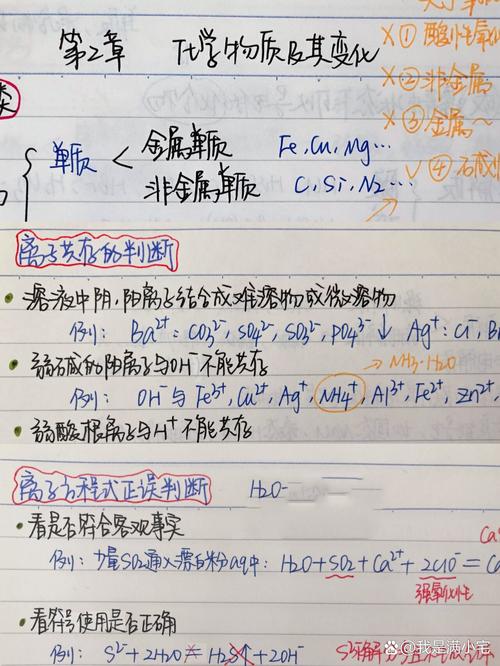 第2章 化学物质及其变化
× ① 酸性氧化
× ② 非金属
× ③ 金属~
✓ ④ 碱性
类
单质 < 金属单质 Fe, Cu, Mg…
非金属单质 C, Si, N2…
离子共存的判断
• 溶液中阴,阳离子结合成难溶物或微溶物
例: Ba²⁺: CO3²⁻, SO4²⁻, SO3²⁻, PO4³⁻ ↓ Ag⁺: Cl⁻, B
• 弱碱的阳离子与OH⁻不能共存
→ NH3·H2O
例: OH⁻与Fe³⁺, Cu²⁺, Ag⁺, NH4⁺, Al³⁺, Fe²⁺, Zn²⁺,
• 弱酸根离子与H⁺不能共存
离子方程式正误判断 H2O
• 看是否符合客观事实
Ca
例: 少量SO2通入漂白粉aq中: H2O+SO2+Ca²⁺+2ClO⁻=Ca
强氧化性
• 看符号使用是否正确
例: S²⁻+2H2O = H2S↑+2OH⁻
@我是满小宅